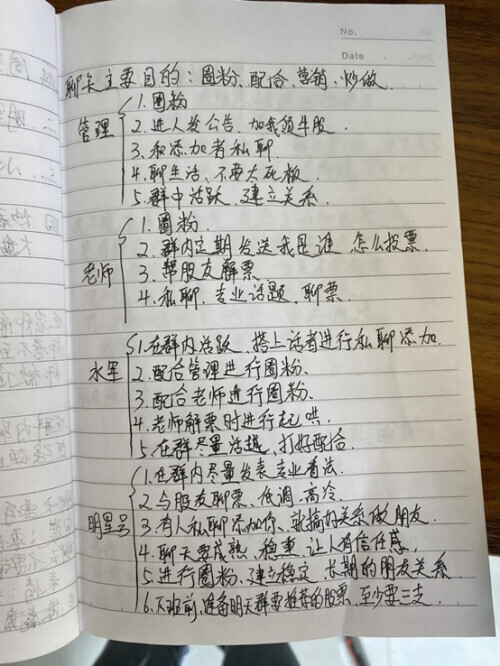 No.
Date
聊天主要目的：圈粉、配合、营销、炒做
管理
1.圈粉
2.进人发公告、加我领牛股.
3.和添加者私聊.
4.聊生活、不要太死板
5.群中活跃、建立关系.
老师
1.圈粉.
2.群内定期发送我是谁、怎么投票.
3.帮股友解票
4.私聊、专业话题、聊票.
水军
1.在群内活跃、搭上话者进行私聊添加.
2.配合管理进行圈粉、
3.配合老师进行圈粉.
4.老师解票时进行起哄.
5.在群尽量活越、打好配合.
明星号
1.在群内尽量发表专业看法.
2.与股友聊票、低调、高冷.
3.有人私聊添加你、就搞好关系做朋友.
4.聊天要成熟、稳重、让人有信任感.
5.进行圈粉、建立稳定、长期的朋友关系.
6.下班前、准备明天群要推荐的股票、至少要三支.